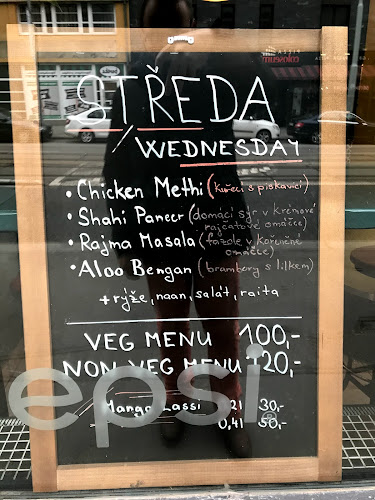 STŘEDA
WEDNESDAY
• Chicken Methi (kuřecí s pískavicí)
• Shahi Paneer (domácí sýr v krémové
rajčatové omáčce)
• Rajma Masala (fazole v kořeněné
omáčce)
• Aloo Bengan (brambory s lilkem)
+ rýže, naan, salát, raita
VEG MENU 100,-
NON VEG MENU 120,-
epsi
Mango Lassi 0,2l 30,-
0,4l 50,-